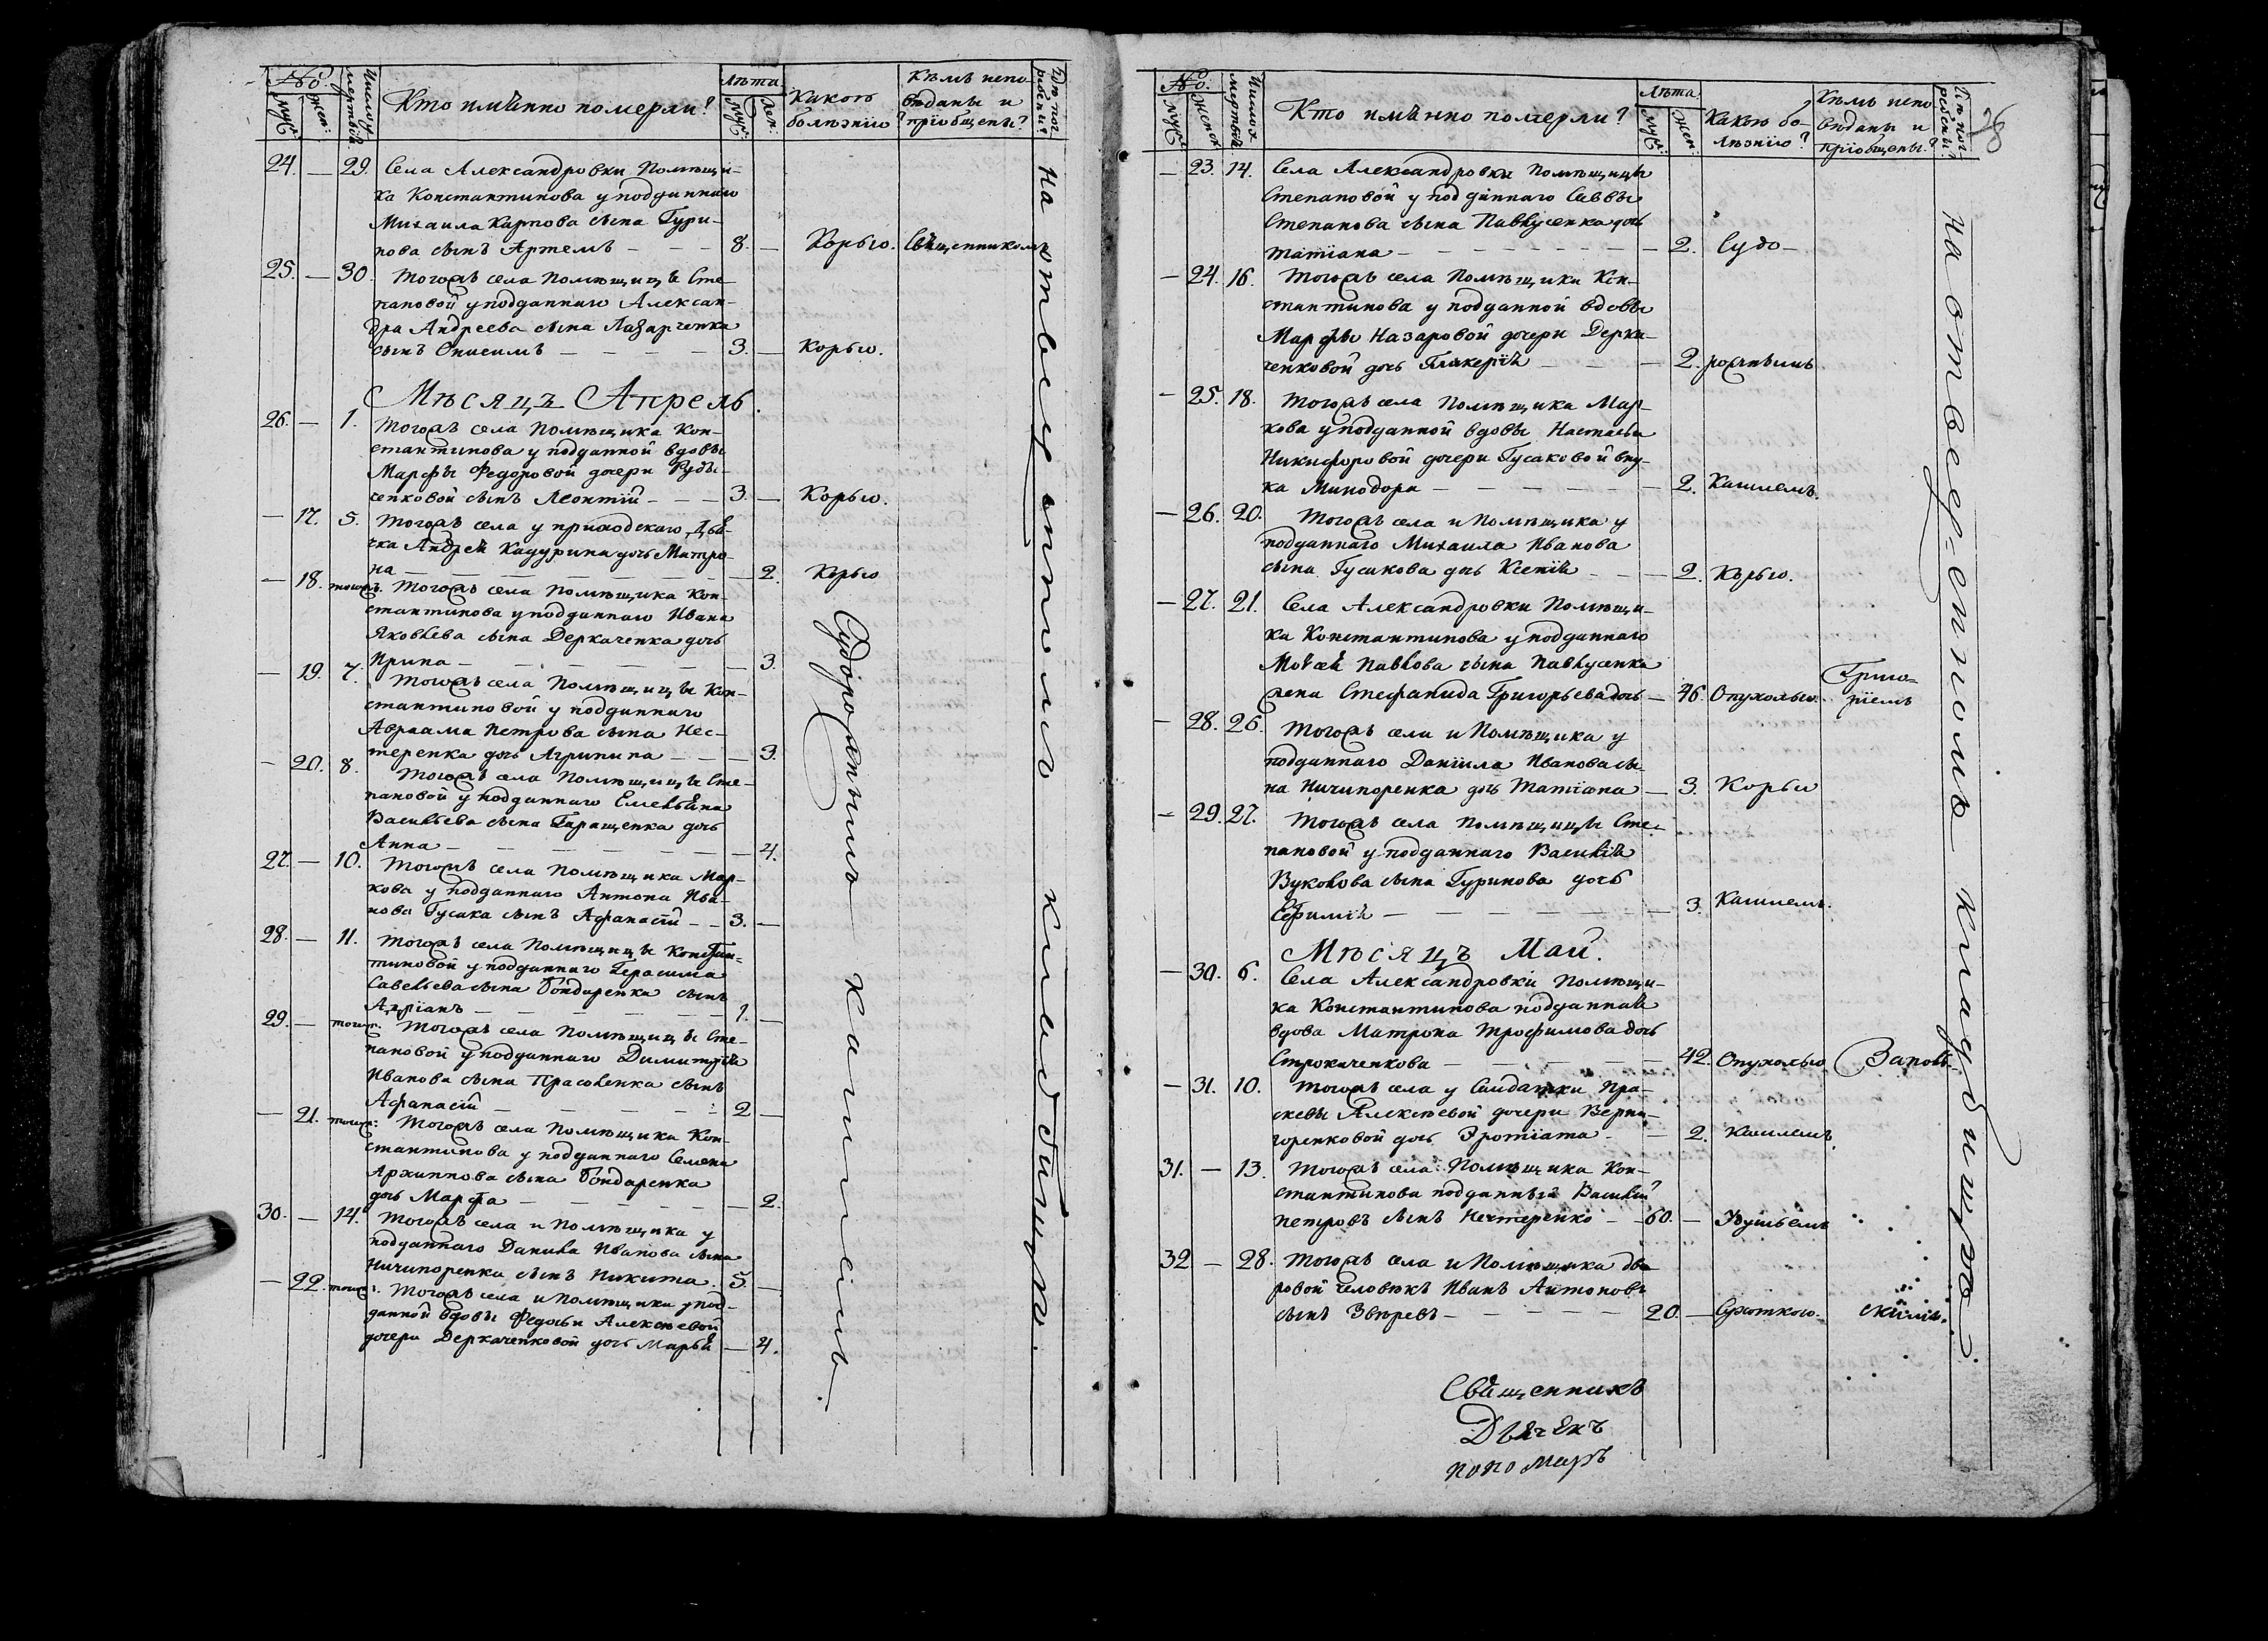 №
Муж:
Жен:
Число умертвія
Кто имѣнно померли?
Лѣта
Муж:
Жен:
Какою
болѣзнію?
Кѣмъ испо-
вѣданы и
пріобщены?
Гдѣ пог-
ребены?
24. — 29. Села Александровки Помѣщи-
ка Константинова у подданнаго
Михаила Карпова сына Гури-
нова сынъ Артемъ — — — 8. — Корью. Священникомъ
25. — 30. Тогожъ села Помѣщицы Сте-
пановой у подданнаго Алексан-
дра Андреева сына Лазарченка
сынъ Онисимъ — — — — 3. — Корью.
Мѣсяцъ Апрель.
26. — 1. Тогожъ села Помѣщика Кон-
стантинова у подданной вдовы
Марфы Федоровой дочери Руды-
ченковой сынъ Леонтій — — — 3. — Корью.
— 17. 5. Тогожъ села у приходскаго Дья-
чка Андрея Кадурина дочь Матро-
на — — — — — — — 2. Корью
— 18. тогожъ. Тогожъ села Помѣщика Кон-
стантинова у подданнаго Ивана
Яковлева сына Деркаченка дочь
Ирина — — — — — — — 3.
— 19. 7. Тогожъ села Помѣщицы Кон-
стантиновой у подданнаго
Авраама Петрова сына Нес-
теренка дочь Агрипина — — — 3.
— 20. 8. Тогожъ села Помѣщицы Сте-
пановой у подданнаго Емельяна
Васильева сына Таращенка дочь
Анна — — — — — — — 4.
27. — 10. Тогожъ села Помѣщика Мар-
кова у подданнаго Антона Ива-
нова Гусака сынъ Афанасій — — 3. —
28. — 11. Тогожъ села Помѣщицы Констан-
тиновой у подданнаго Герасима
Савельева сына Бондаренка сынъ
Адріанъ — — — — — 1. —
29. — тогож: Тогожъ села Помѣщицы Сте-
пановой у подданнаго Димитрія
Иванова сына Прасоленка сынъ
Афанасій — — — — — 2 —
— 21. тогож: Тогожъ села Помѣщика Кон-
стантинова у подданнаго Семена
Архиппова сына Бондаренка
дочь Марфа — — — — — 2.
30. — 14. Тогожъ села и Помѣщика у
подданнаго Данила Иванова сына
Ничипоренка сынъ Никита. 5. —
— 22. тогож: Тогожъ села и Помѣщика у под-
данной вдовы Федосьи Алексѣевой
дочери Деркаченковой дочь Марья — 4.
Судорожнымъ кашлемъ.
На отведенномъ кладбищѣ.
№
Муж:
Женск:
Число умертвія
Кто имѣнно померли?
Лѣта
Муж:
Жен:
Какою бо-
лѣзнію?
Кѣмъ испо
вѣданы и
пріобщены?
Гдѣ пог-
ребены?
— 23. 14. Села Александровки Помѣщицы
Степановой у подданнаго Саввы
Степанова сына Павлусенка дочь
Татіана — — — — — — — 2. Судо-
— 24. 16. Тогожъ села Помѣщика Кон-
стантинова у подданной вдовы
Марфы Назаровой дочери Дерка-
ченковой дочь Гликерія — — — 2.
— 25. 18. Тогожъ села Помѣщика Мар-
кова у подданной вдовы Настасьи
Никифоровой дочери Гусаковой вну-
ка Минодора — — — — — — 2. Кашлемъ.
— 26. 20. Тогожъ села и Помѣщика у
подданнаго Михаила Иванова
сына Гусакова дочь Ксенія — — — 2. Корью.
— 27. 21. Села Александровки Помѣщи-
ка Константинова у подданнаго
Моѵсея Павлова сына Павлусенка
жена Стефанида Григорьева дочь — 46. Опухолью. Григо-
ріемъ
— 28. 26. Тогожъ села и Помѣщика у
подданнаго Даніила Иванова сы-
на Ничипоренка дочь Татіана — 3. Корью
— 29. 27. Тогожъ села Помѣщицы Сте-
пановой у подданнаго Василія
Вуколова сына Гуринова дочь
Ефимія — — — — — — — 3. Кашлемъ.
Мѣсяцъ Май.
— 30. 6. Села Александровки Помѣщи-
ка Константинова подданная
вдова Матрона Трофимова дочь
Строкаченкова — — — — — 42. Опухолью
— 31. 10. Тогожъ села у Солдатки Пра-
сковьи Алексѣевой дочери Верни-
горенковой дочь — — 2. Кашлемъ.
31. — 13. Тогожъ села Помѣщика Кон-
стантинова подданный Василій
Петровъ сынъ Нестеренко — — 60. — Удушьемъ
32 — 28. Тогожъ села и Помѣщика дво-
ровой человѣкъ Иванъ Антоновъ
сынъ Звѣревъ — — — — — 20. — Сухоткою.
На отведенномъ кладбищѣ.
Священникъ
Дьячекъ
Пономарь